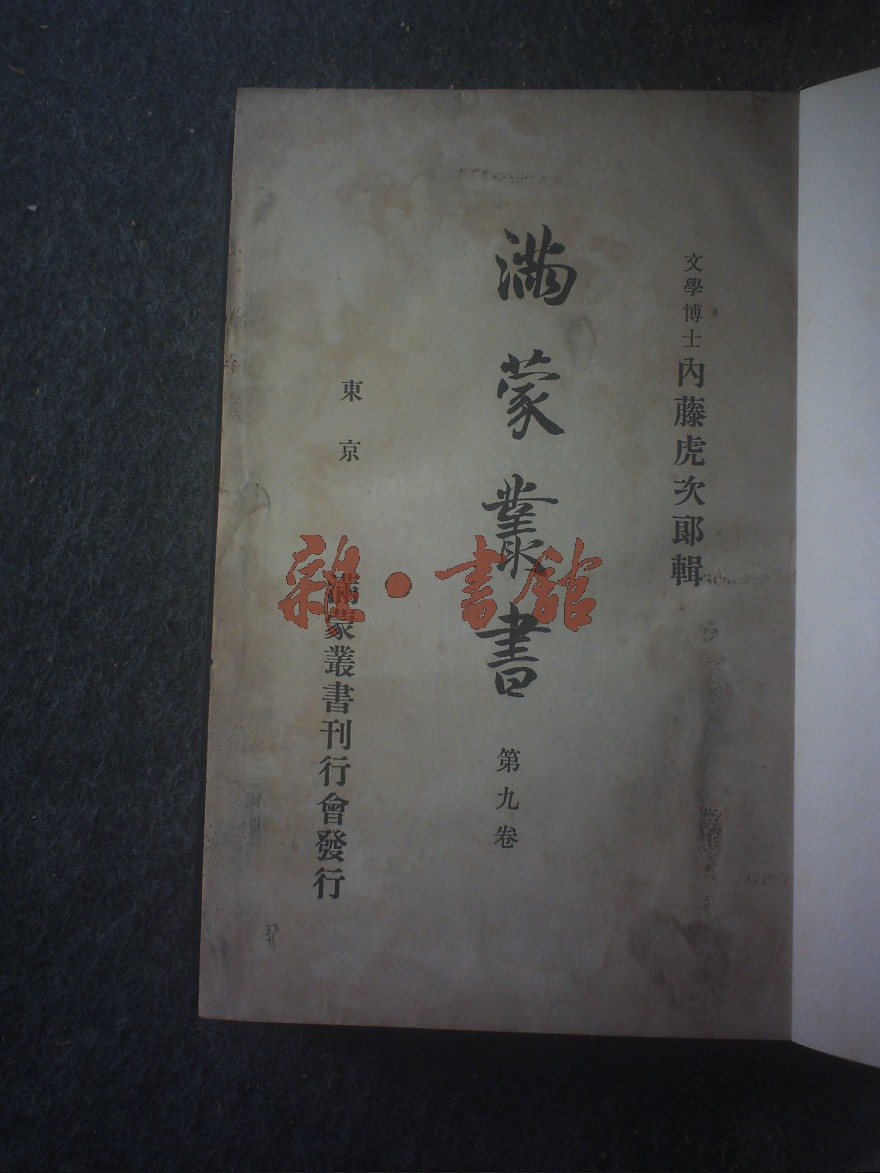 文學博士內藤虎次郎輯
滿蒙叢書
第九卷
東京
滿蒙叢書刊行會發行
雜·書館